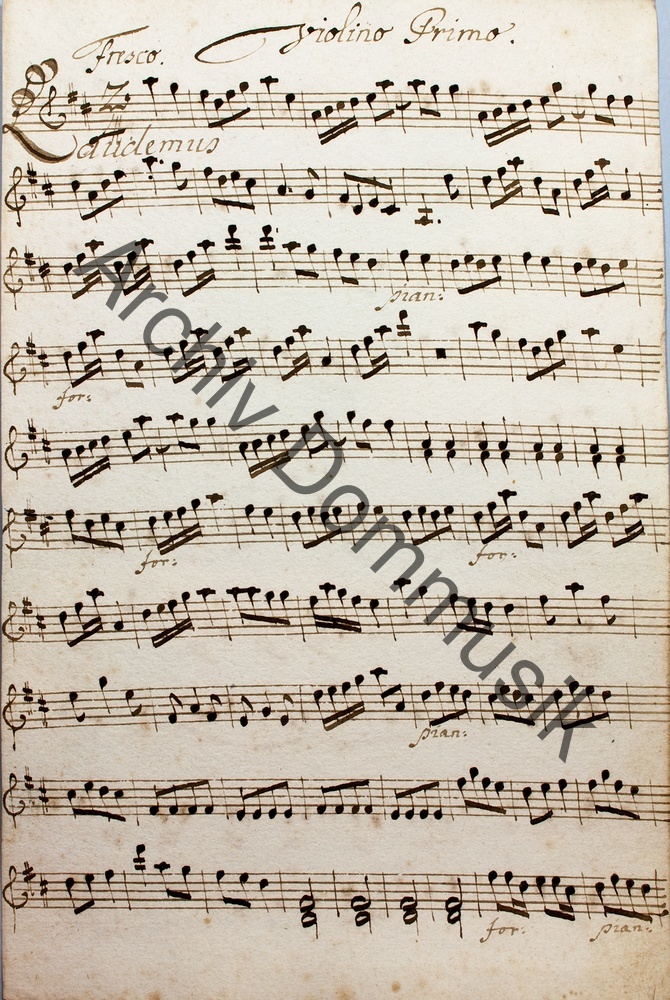 Violino Primo.
Fresco.
2
Laudemus
pian:
for:
for: for:
pian:
for: pian:
Archiv Dommusik